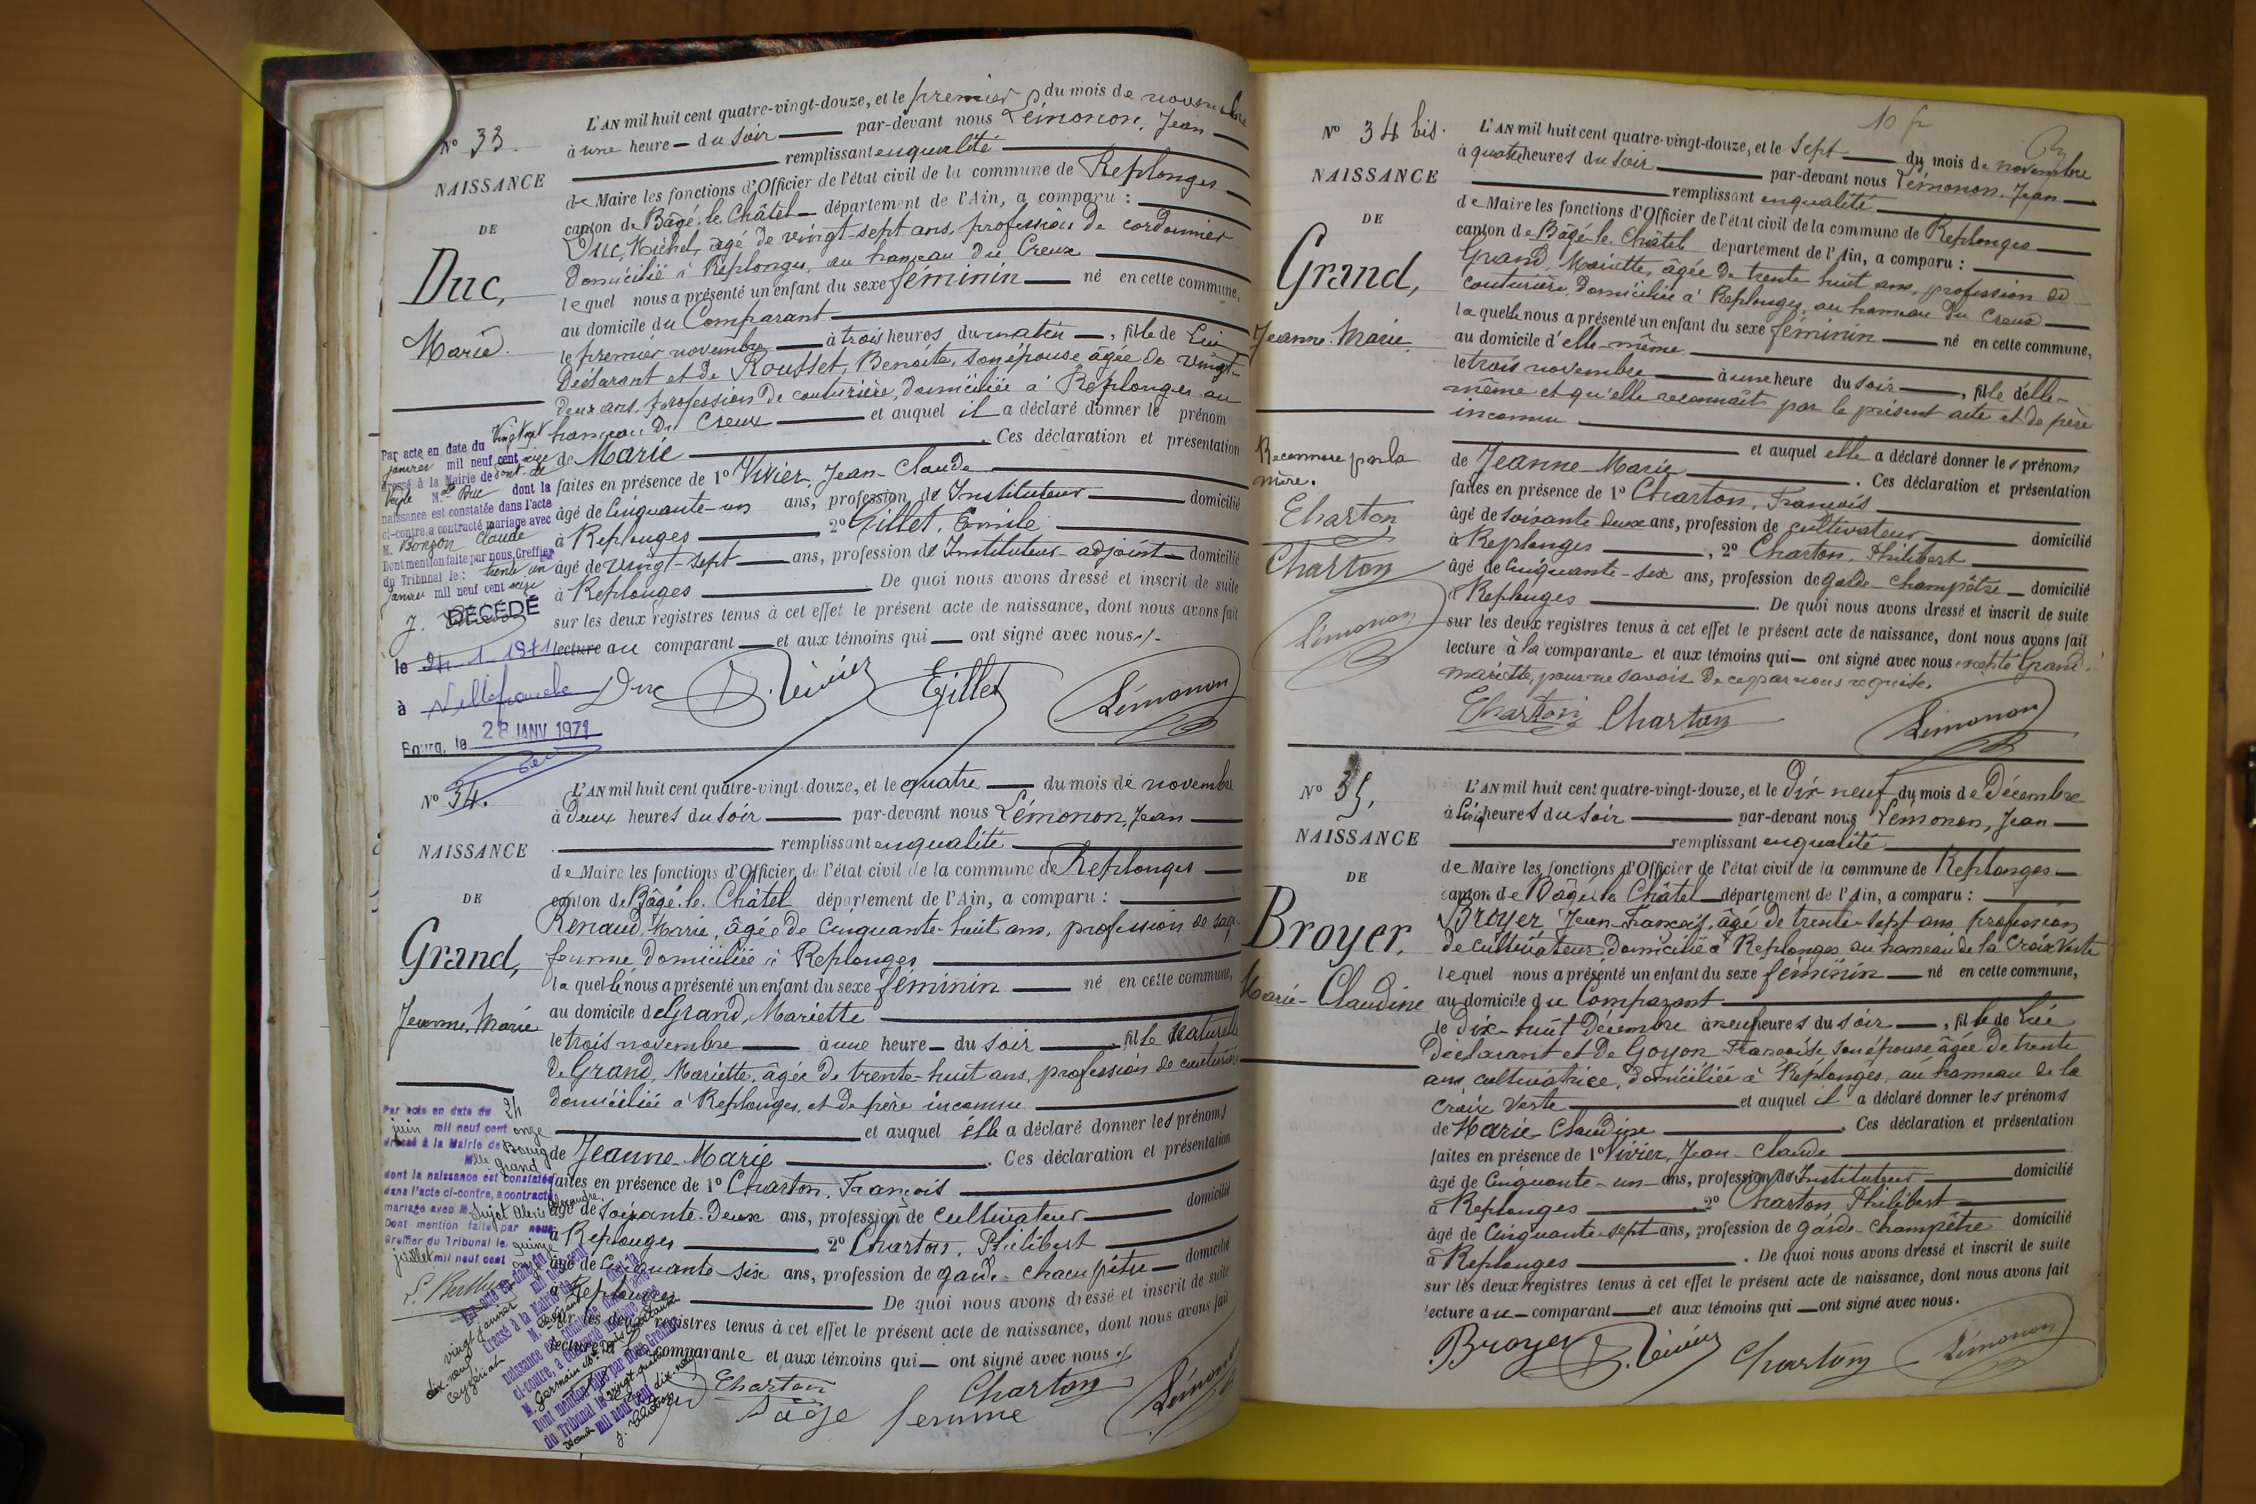 N° 33.
NAISSANCE
DE
Duc,
Marie.
L'AN mil huit cent quatre-vingt-douze, et le premier du mois de novembre
à une heure du soir par-devant nous Lémonon, Jean
remplissant en qualité
de Maire les fonctions d'Officier de l'état civil de la commune de Replonges
canton de Bâgé-le-Châtel département de l'Ain, a comparu :
Duc, Michel, âgé de vingt-sept ans, profession de cordonnier
domicilié à Replonges, au hameau du Creux
lequel nous a présenté un enfant du sexe féminin né en cette commune,
au domicile du Comparant
le premier novembre à trois heures du matin, fille de Lui
Déclarant et de Rousset, Benoite, son épouse âgée de vingt-
deux ans, profession de couturière, domiciliée à Replonges au
hameau du Creux et auquel il a déclaré donner le prénom
de Marie. Ces déclaration et présentation
faites en présence de 1° Vivier, Jean-Claude
âgé de Cinquante-un ans, profession de Instituteur domicilié
à Replonges 2° Gillet, Emile
âgé de vingt-sept ans, profession de Instituteur adjoint domicilié
à Replonges. De quoi nous avons dressé et inscrit de suite
sur les deux registres tenus à cet effet le présent acte de naissance, dont nous avons fait
lecture au comparant et aux témoins qui ont signé avec nous.
Duc J. Vivier Gillet Lémonon
Par acte en date du vingt sept
janvier mil neuf cent seize
dressé à la Mairie de Pont de
Veyle Melle Duc dont la
naissance est constatée dans l'acte
ci-contre, a contracté mariage avec
M. Bonzon Claude
Dont mention faite par nous, Greffier
du Tribunal le : trente un
janvier mil neuf cent seize
DÉCÉDÉ
le 24-1-1971
à Villefranche
Bourg, le 28 JANV 1971
N° 34.
NAISSANCE
DE
Grand,
Jeanne, Marie
L'AN mil huit cent quatre-vingt-douze, et le quatre du mois de novembre
à Deux heures du soir par-devant nous Lémonon, Jean
remplissant en qualité
de Maire les fonctions d'Officier de l'état civil de la commune de Replonges
canton de Bâgé-le-Châtel département de l'Ain, a comparu :
Renaud, Marie, âgée de Cinquante-huit ans, profession de sage-
femme domiciliée à Replonges
laquelle nous a présenté un enfant du sexe féminin né en cette commune,
au domicile de Grand, Mariette
le trois novembre à une heure du soir, fille Naturelle
De Grand, Mariette, âgée de trente-huit ans, profession de couturière
domiciliée à Replonges, et de père inconnu
et auquel elle a déclaré donner les prénoms
de Jeanne-Marie. Ces déclaration et présentation
faites en présence de 1° Charton, François
âgé de Soixante-Deux ans, profession de cultivateur domicilié
à Replonges 2° Charton, Philibert
âgé de Cinquante-six ans, profession de garde-champêtre domicilié
à Replonges De quoi nous avons dressé et inscrit de suite
sur les deux registres tenus à cet effet le présent acte de naissance, dont nous avons fait
lecture à la comparante et aux témoins qui ont signé avec nous.
Charton Charton Lémonon
Sage femme
Par acte en date du 24
juin mil neuf cent onze
dressé à la Mairie de Bourg
Melle Grand
dont la naissance est constatée
dans l'acte ci-contre, a contracté
mariage avec M. Sujet Alexis Alexandre.
Dont mention faite par nous
Greffier du Tribunal le quinze
juillet mil neuf cent onze
Par acte en date du
vingt janvier mil neuf cent
dix neuf dressé à la Mairie de
Ceyzériat
naissance est constatée dans l'acte
ci-contre, a contracté mariage avec
Dont mention faite par nous Greffier
du Tribunal le vingt quatre
mil neuf cent dix neuf
N° 34 bis.
NAISSANCE
DE
Grand,
Jeanne-Marie.
Reconnue par la
mère.
Charton
Charton
Lémonon
10 fr
L'AN mil huit cent quatre-vingt-douze, et le sept du mois de novembre
à quatre heures du soir par-devant nous Lémonon, Jean
remplissant en qualité
de Maire les fonctions d'Officier de l'état civil de la commune de Replonges
canton de Bâgé-le-Châtel département de l'Ain, a comparu :
Grand, Mariette, âgée de trente huit ans, profession de
couturière, domiciliée à Replonges, au hameau du Creux
laquelle nous a présenté un enfant du sexe féminin né en cette commune,
au domicile d'elle-même
le trois novembre à une heure du soir, fille d'elle-
même et qu'elle reconnaît par le présent acte et de père
inconnu
et auquel elle a déclaré donner les prénoms
de Jeanne-Marie. Ces déclaration et présentation
faites en présence de 1° Charton, François
âgé de soixante-deux ans, profession de cultivateur domicilié
à Replonges, 2° Charton, Philibert
âgé de Cinquante-six ans, profession de garde-champêtre domicilié
à Replonges. De quoi nous avons dressé et inscrit de suite
sur les deux registres tenus à cet effet le présent acte de naissance, dont nous avons fait
lecture à la comparante et aux témoins qui ont signé avec nous excepté Grand
mariette, pour ne savoir de ce par nous requise.
Charton Charton Lémonon
N° 35.
NAISSANCE
DE
Broyer,
Marie-Claudine
L'AN mil huit cent quatre-vingt-douze, et le Dix neuf du mois de Décembre
à Cinq heures du soir par-devant nous Lémonon, Jean
remplissant en qualité
de Maire les fonctions d'Officier de l'état civil de la commune de Replonges
canton de Bâgé-le-Châtel département de l'Ain, a comparu :
Broyer Jean-François, âgé de trente-sept ans, profession
de cultivateur domicilié à Replonges au hameau de la Croix Verte
lequel nous a présenté un enfant du sexe féminin né en cette commune,
au domicile du Comparant
le Dix-huit Décembre à neuf heures du soir, fille de Lui
Déclarant et de Goyon Françoise son épouse âgée de trente
ans, cultivatrice, domiciliée à Replonges, au hameau de la
Croix Verte et auquel il a déclaré donner les prénoms
de Marie-Claudine. Ces déclaration et présentation
faites en présence de 1° Vivier, Jean-Claude
âgé de Cinquante-un ans, profession de Instituteur domicilié
à Replonges, 2° Charton Philibert
âgé de Cinquante-sept ans, profession de garde-champêtre domicilié
à Replonges. De quoi nous avons dressé et inscrit de suite
sur les deux registres tenus à cet effet le présent acte de naissance, dont nous avons fait
lecture au comparant et aux témoins qui ont signé avec nous.
Broyer J. Vivier Charton Lémonon